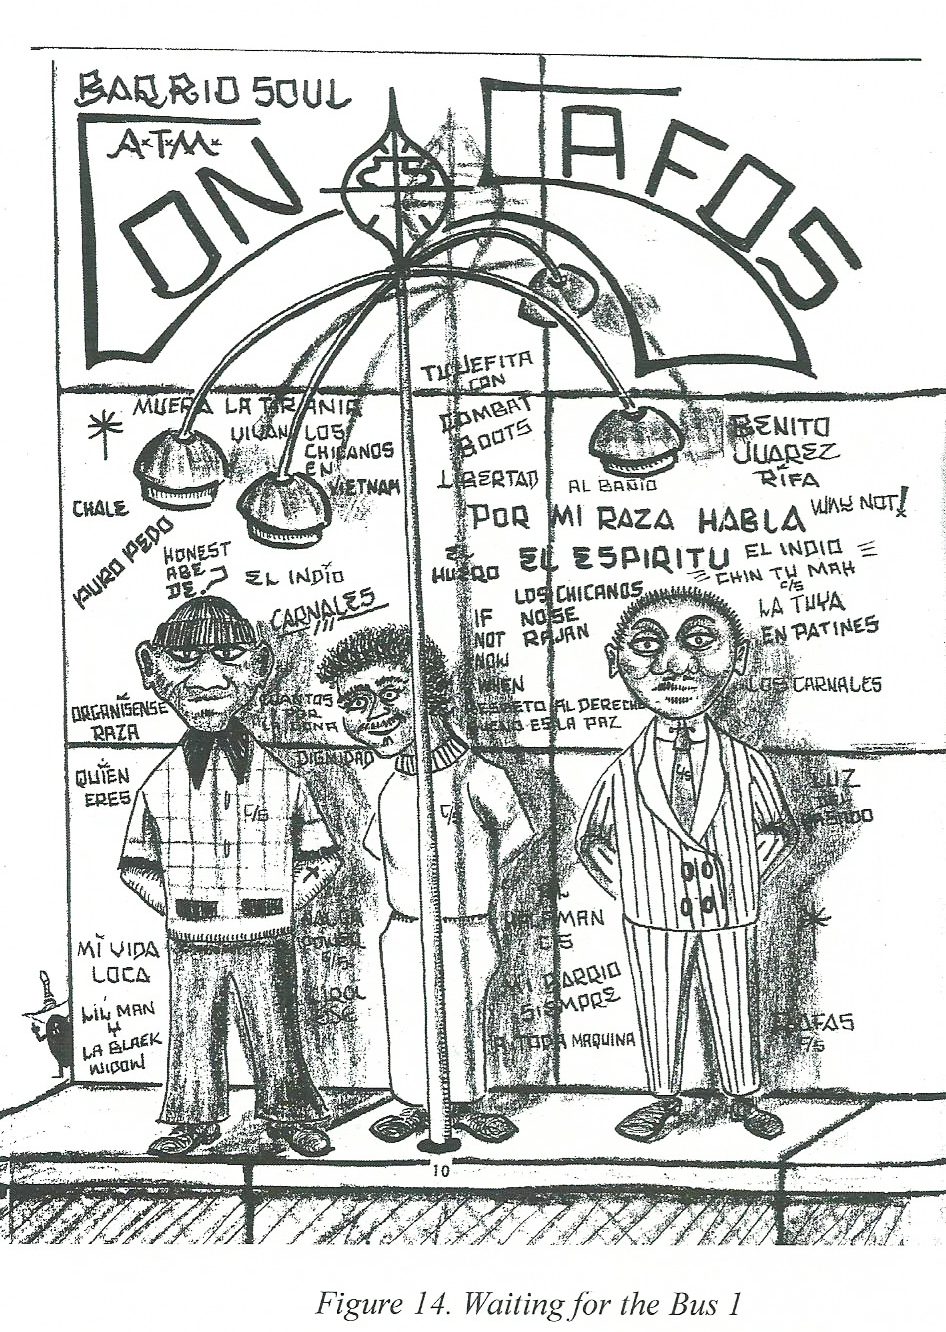 BARRIO SOUL
A·T·M·
ON
C/S
LAFOS
TU JEFITA
CON
COMBAT
BOOTS
MUERA LA TIRANIA
VIVAN LOS
CHICANOS
EN
VIETNAM
BENITO
JUAREZ
RIFA
LIBERTAD
AL BAÑO
CHALE
WHY NOT!
POR MI RAZA HABLA
EL ESPIRITU
PURO PEDO
HONEST
ABE
DE?
EL INDIO
EL
HUERO
EL INDIO
CHIN TU MAH
C/S
CARNALES
LOS CHICANOS
NO SE
RAJAN
IF
NOT
NOW
WHEN
LA TUYA
EN PATINES
ORGANISENSE
RAZA
LOS CARNALES
RESPETO AL DERECHO
ES LA PAZ
DIGNIDAD
QUIEN
ERES
C/S
C/S
C/S
LUZ
MAN
C/S
MI VIDA
LOCA
C/S
MI BARRIO
SIEMPRE
LIL MAN
Y
LA BLACK
WIDOW
A TODA MAQUINA
LAFAS
C/S
10
Figure 14. Waiting for the Bus 1